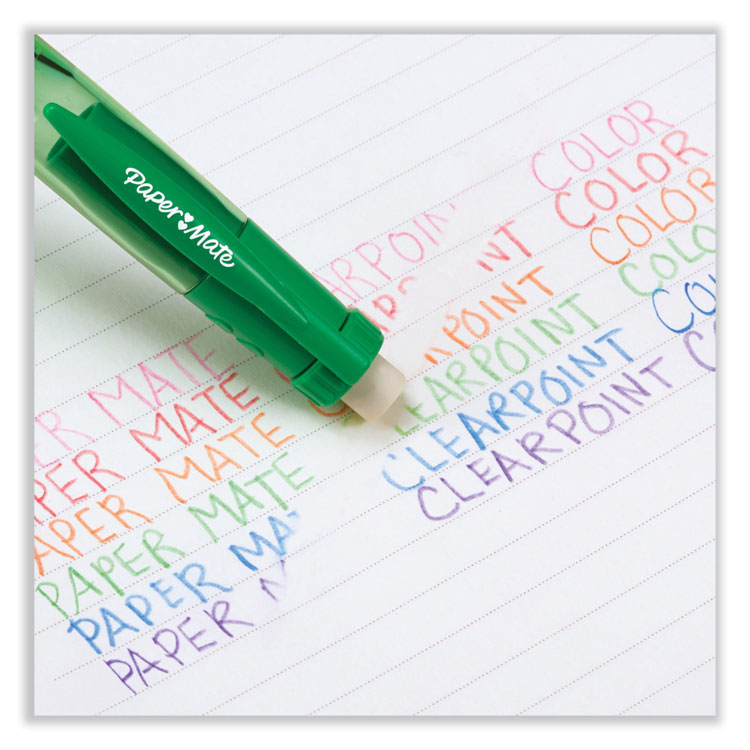 Paper Mate
ER MATE ARPOIN COLOR
PER MATE NT COLOR
APER MATE POINT COLOR
PAPER MATE LEARPOINT COLO
PAPER MA CLEARPOINT CO
PAPER CLEARPOINT C